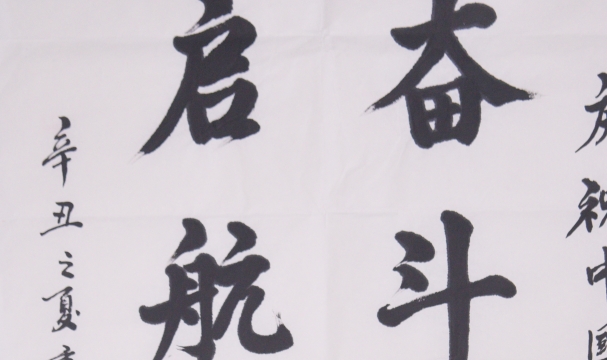 祝中国
奋斗
启航
辛丑之夏